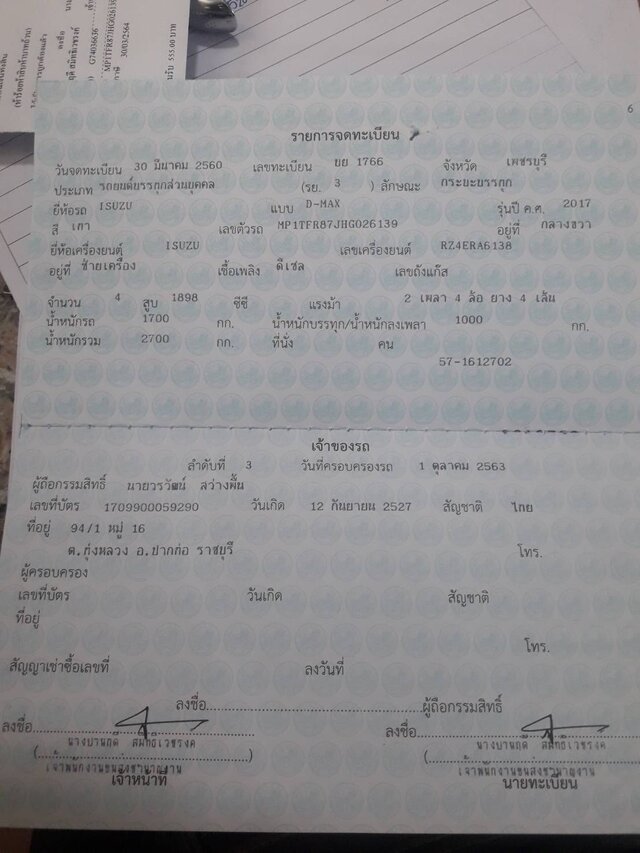 6
รายการจดทะเบียน
วันจดทะเบียน 30 มีนาคม 2560 เลขทะเบียน ยย 1766 จังหวัด เพชรบุรี
ประเภท รถยนต์บรรทุกส่วนบุคคล (รย. 3 ) ลักษณะ กระบะบรรทุก
ยี่ห้อรถ ISUZU แบบ D-MAX รุ่นปี ค.ศ. 2017
สี เทา เลขตัวรถ MP1TFR87JHG026139 อยู่ที่ กลางขวา
ยี่ห้อเครื่องยนต์ ISUZU เลขเครื่องยนต์ RZ4ERA6138
อยู่ที่ ซ้ายเครื่อง เชื้อเพลิง ดีเซล เลขถังแก๊ส
จำนวน 4 สูบ 1898 ซีซี แรงม้า 2 เพลา 4 ล้อ ยาง 4 เส้น
น้ำหนักรถ 1700 กก. น้ำหนักบรรทุก/น้ำหนักลงเพลา 1000 กก.
น้ำหนักรวม 2700 กก. ที่นั่ง คน
57-1612702
เจ้าของรถ
ลำดับที่ 3 วันที่ครอบครองรถ 1 ตุลาคม 2563
ผู้ถือกรรมสิทธิ์ นายวรวัฒน์ สว่างพื้น
เลขที่บัตร 1709900059290 วันเกิด 12 กันยายน 2527 สัญชาติ ไทย
ที่อยู่ 94/1 หมู่ 16
ต.ทุ่งหลวง อ.ปากท่อ ราชบุรี โทร.
ผู้ครอบครอง
เลขที่บัตร วันเกิด สัญชาติ
ที่อยู่
โทร.
สัญญาเช่าซื้อเลขที่ ลงวันที่
ลงชื่อ ผู้ถือกรรมสิทธิ์
ลงชื่อ ลงชื่อ
เจ้าพนักงานขนส่งชำนาญงาน เจ้าพนักงานขนส่งชำนาญงาน
เจ้าหน้าที่ นายทะเบียน